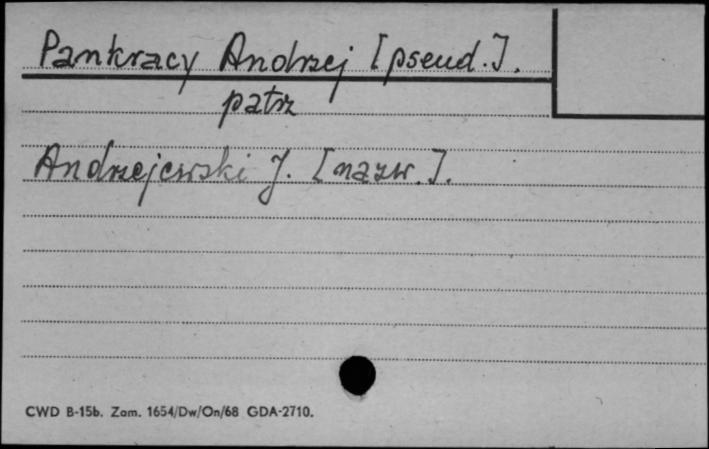 Pankracy Andrzej [pseud.].
patrz
Andrzejewski J. [nazw.].
CWD B-15b. Zam. 1654/Dw/On/68 GDA-2710.